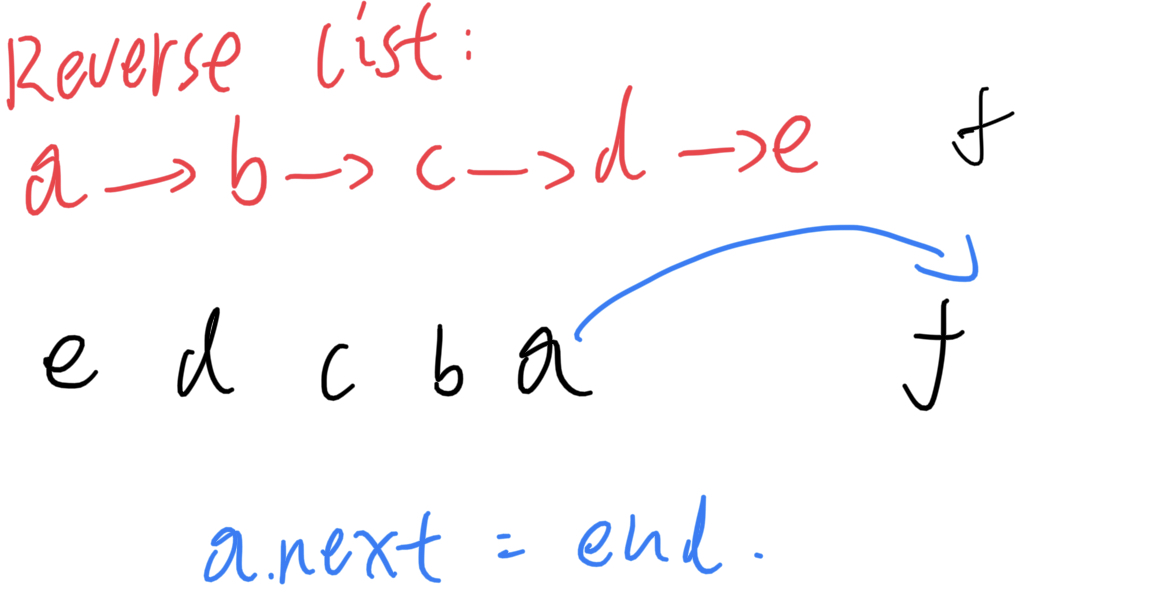 Reverse list:
a → b → c → d → e f
e d c b a f
a.next = end.